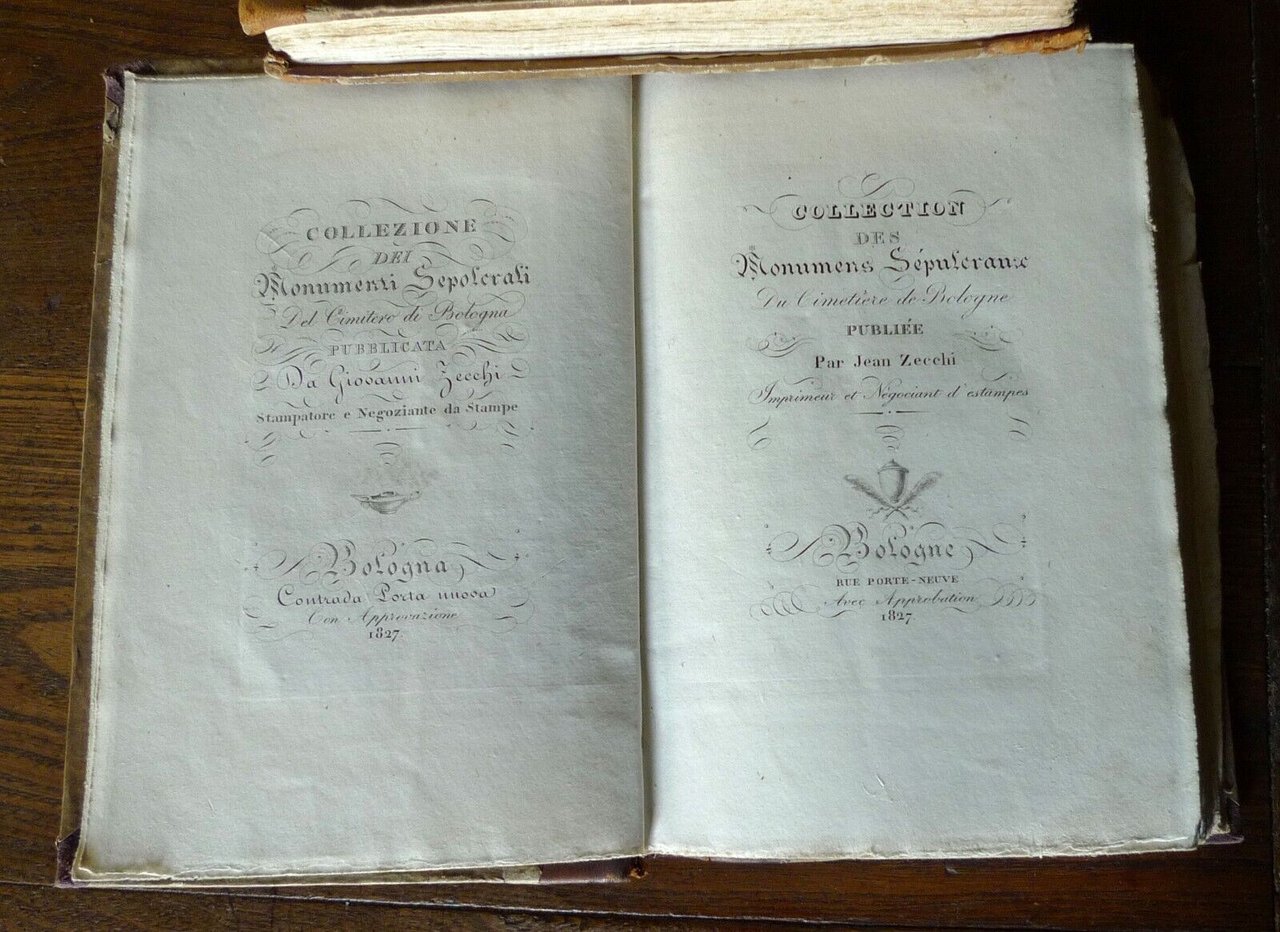 COLLEZIONE
DEI
Monumenti Sepolcrali
Del Cimitero di Bologna
PUBBLICATA
Da Giovanni Zecchi
Stampatore e Negoziante da Stampe
Bologna
Contrada Porta nuova
Con Approvazione
1827.
COLLECTION
DES
Monumens Sépulcraux
Du Cimetière de Bologne
PUBLIÉE
Par Jean Zecchi
Imprimeur et Négociant d'estampes
Bologne
RUE PORTE-NEUVE
Avec Approbation
1827